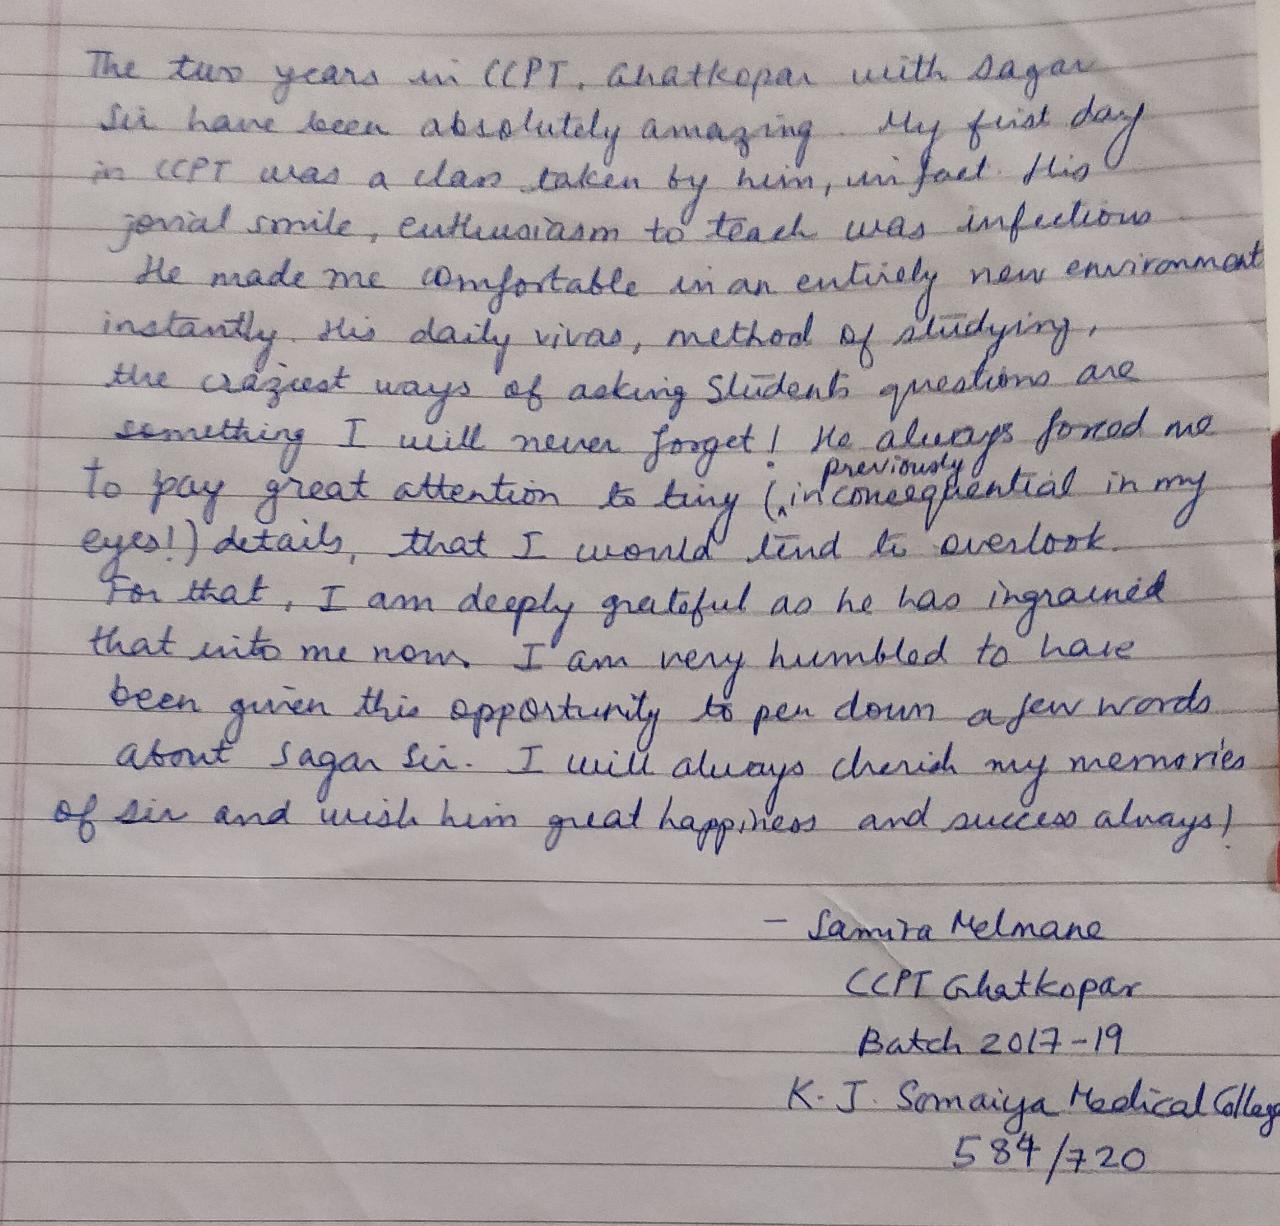 The two years in CCPT, Ghatkopar with Sagar
Sir have been absolutely amazing. My first day
in CCPT was a class taken by him, in fact. His
jovial smile, enthusiasm to teach was infectious
He made me comfortable in an entirely new environment
instantly. His daily vivas, method of studying,
the craziest ways of asking students questions are
something I will never forget! He always forced me
to pay great attention to tiny (previously inconsequential in my
eyes!) details, that I would tend to overlook.
For that, I am deeply grateful as he has ingrained
that into me now. I am very humbled to have
been given this opportunity to pen down a few words
about Sagar Sir. I will always cherish my memories
of sir and wish him great happiness and success always!
- Samira Melmane
CCPT Ghatkopar
Batch 2017-19
K. J. Somaiya Medical College
584/720